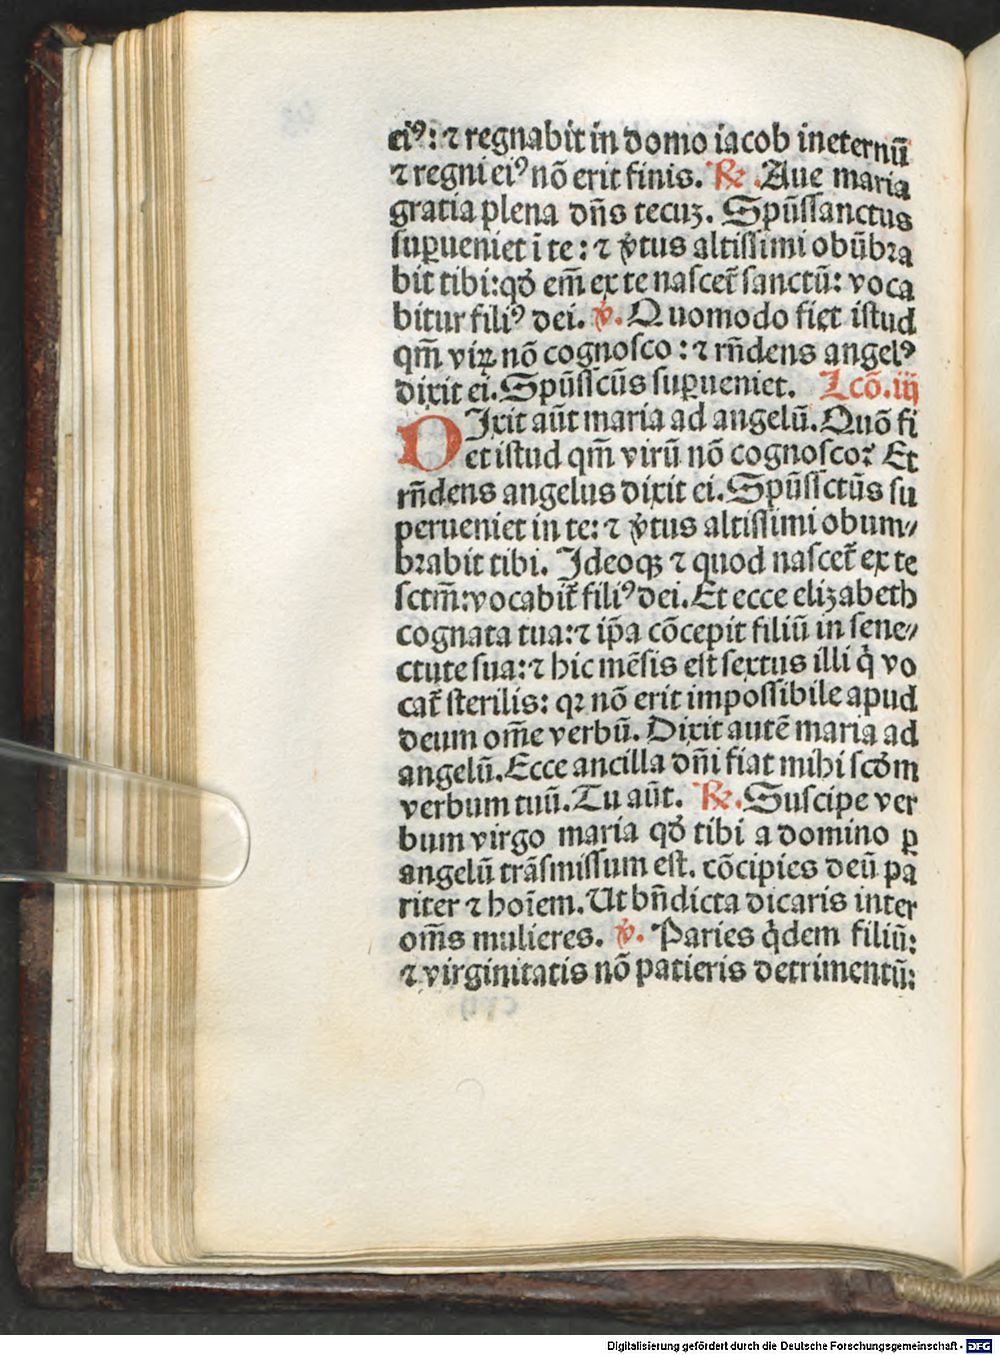 eiꝰ: ⁊ regnabit in domo iacob ineternū
⁊ regni eiꝰ nō erit finis. ℟. Aue maria
gratia plena dn̄s tecuꝫ. Spūſſanctus
ſuꝑueniet ī te: ⁊ v̓tus altiſſimi obūbꝛa
bit tibi: qḋ em̄ ex te naſcet᷑ ſanctū: voca
bitur filiꝰ dei. ℣. Quomodo fiet iſtud
qm̄ viꝝ nō cognoſco: ⁊ rn̄dens angelꝰ
dixit ei. Spūſſcūs ſuꝑueniet. Lcō. iij
DIxit aūt maria ad angelū. Quō fi
et iſtud qm̄ virū nō cognoſco? Et
rn̄dens angelus dixit ei. Spūſſctūs ſu
perueniet in te: ⁊ v̓tus altiſſimi obum⸗
bꝛabit tibi. Ideoqꝫ ⁊ quod naſcet᷑ ex te
ſctm̄: vocabit᷑ filiꝰ dei. Et ecce elizabeth
cognata tua: ⁊ ip̄a cōcepit filiū in ſene⸗
ctute ſua: ⁊ hic mēſis eſt ſextus illi q̇ vo
cat᷑ ſterilis: qꝛ nō erit impoſſibile apud
deum om̄e verbū. Dixit autē maria ad
angelū. Ecce ancilla dn̄i fiat mihi ſcḋm
verbum tuū. Tu aūt. ℟. Suſcipe ver
bum virgo maria qḋ tibi a domino ꝑ
angelū trāſmiſſum eſt. cōcipies deū pa
riter ⁊ hoīem. Ut bn̄dicta dicaris inter
om̄s mulieres. ℣. Paries q̇dem filiū:
⁊ virginitatis nō patieris detrimentū:
Digitalisierung gefördert durch die Deutsche Forschungsgemeinschaft - DFG